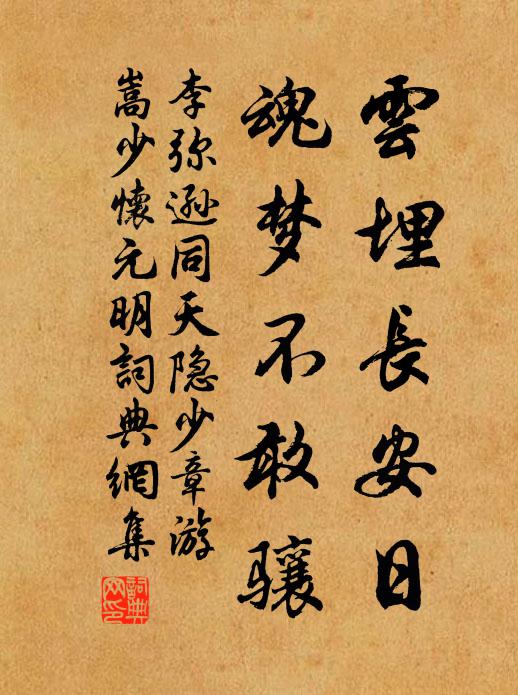 雲埋長安日
魂梦不敢骧
李弥逊同天隐少章游
嵩少懷元明詞典網集
詞典
网印